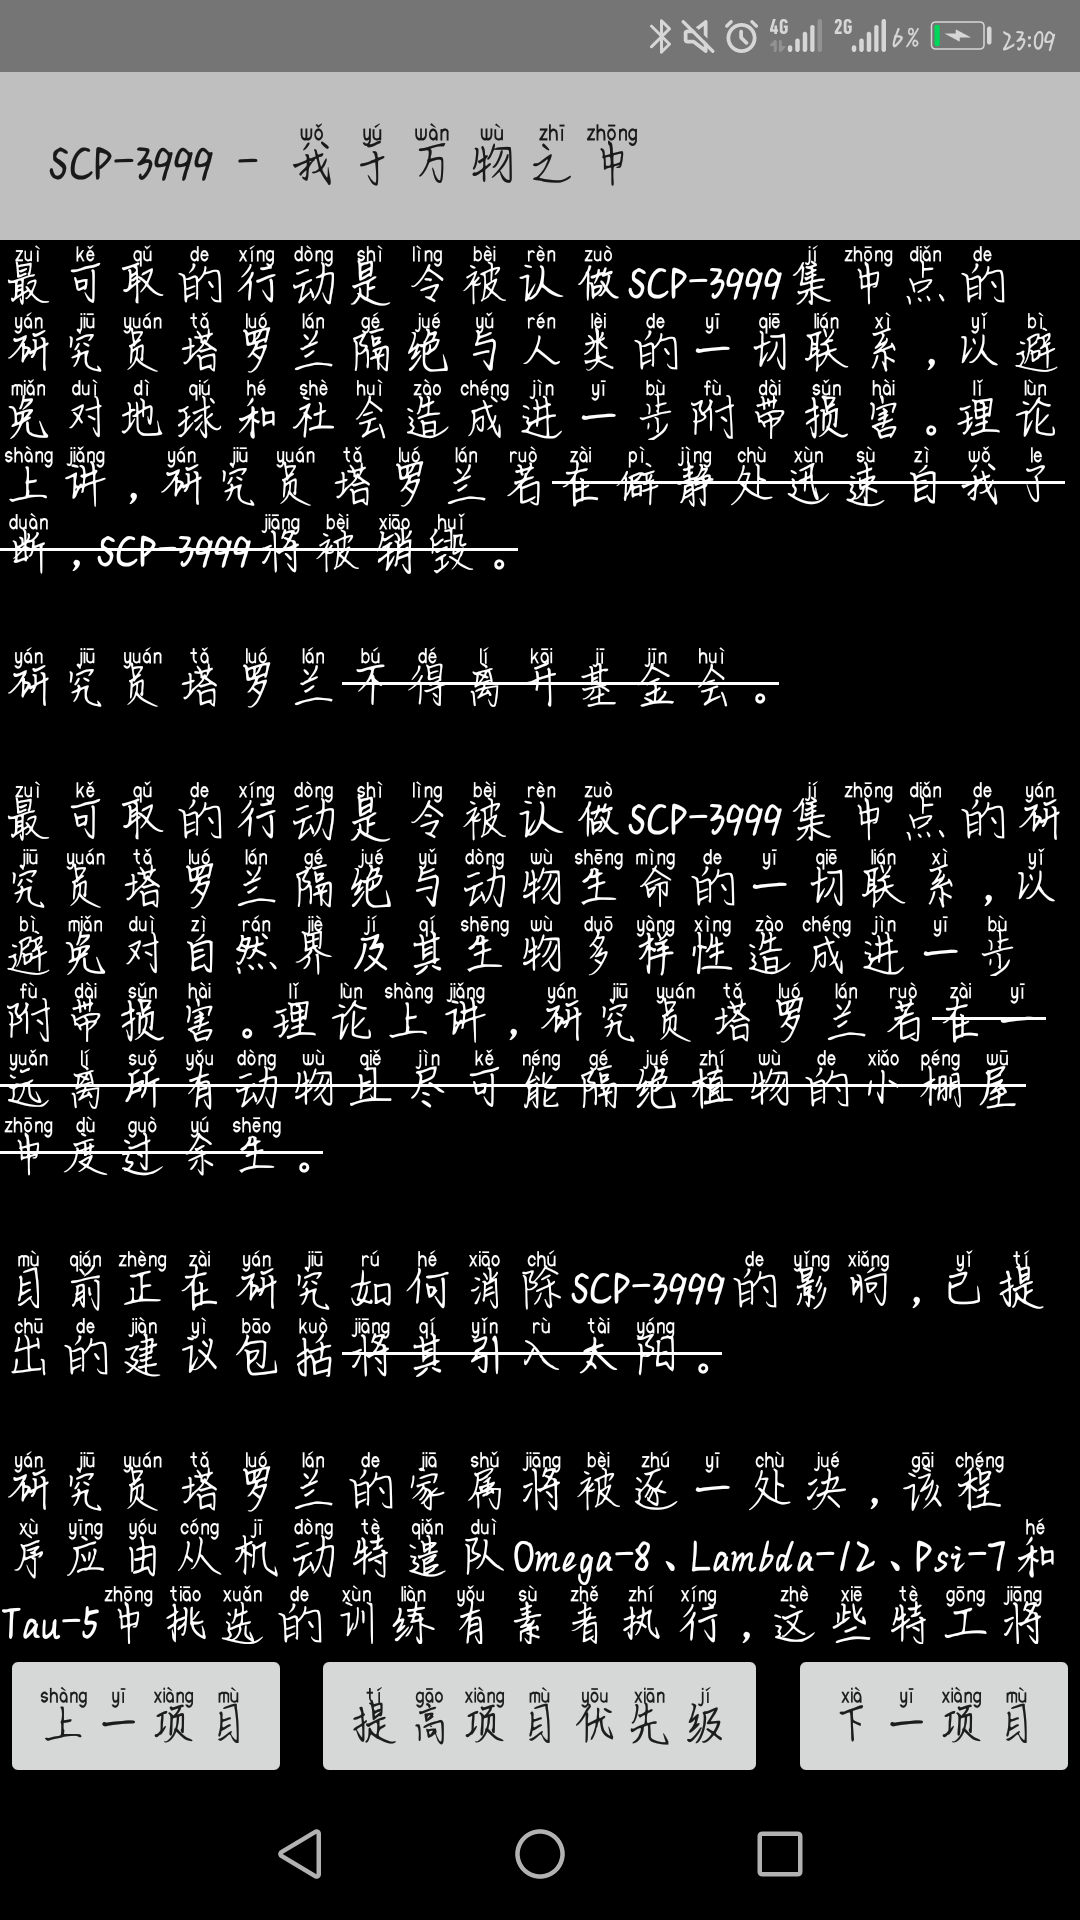 4G 2G 6% 23:09
SCP-3999 - 我于万物之中
最可取的行动是令被认做SCP-3999集中点的
研究员塔罗兰隔绝与人类的一切联系，以避
免对地球和社会造成进一步附带损害。理论
上讲，研究员塔罗兰若在僻静处迅速自我了
断，SCP-3999将被销毁。
研究员塔罗兰不得离开基金会。
最可取的行动是令被认做SCP-3999集中点的研
究员塔罗兰隔绝与动物生命的一切联系，以
避免对自然界及其生物多样性造成进一步
附带损害。理论上讲，研究员塔罗兰若在一
远离所有动物且尽可能隔绝植物的小棚屋
中度过余生。
目前正在研究如何消除SCP-3999的影响，已提
出的建议包括将其引入太阳。
研究员塔罗兰的家属将被逐一处决，该程
序应由从机动特遣队Omega-8、Lambda-12、Psi-7和
Tau-5中挑选的训练有素者执行，这些特工将
上一项目 提高项目优先级 下一项目